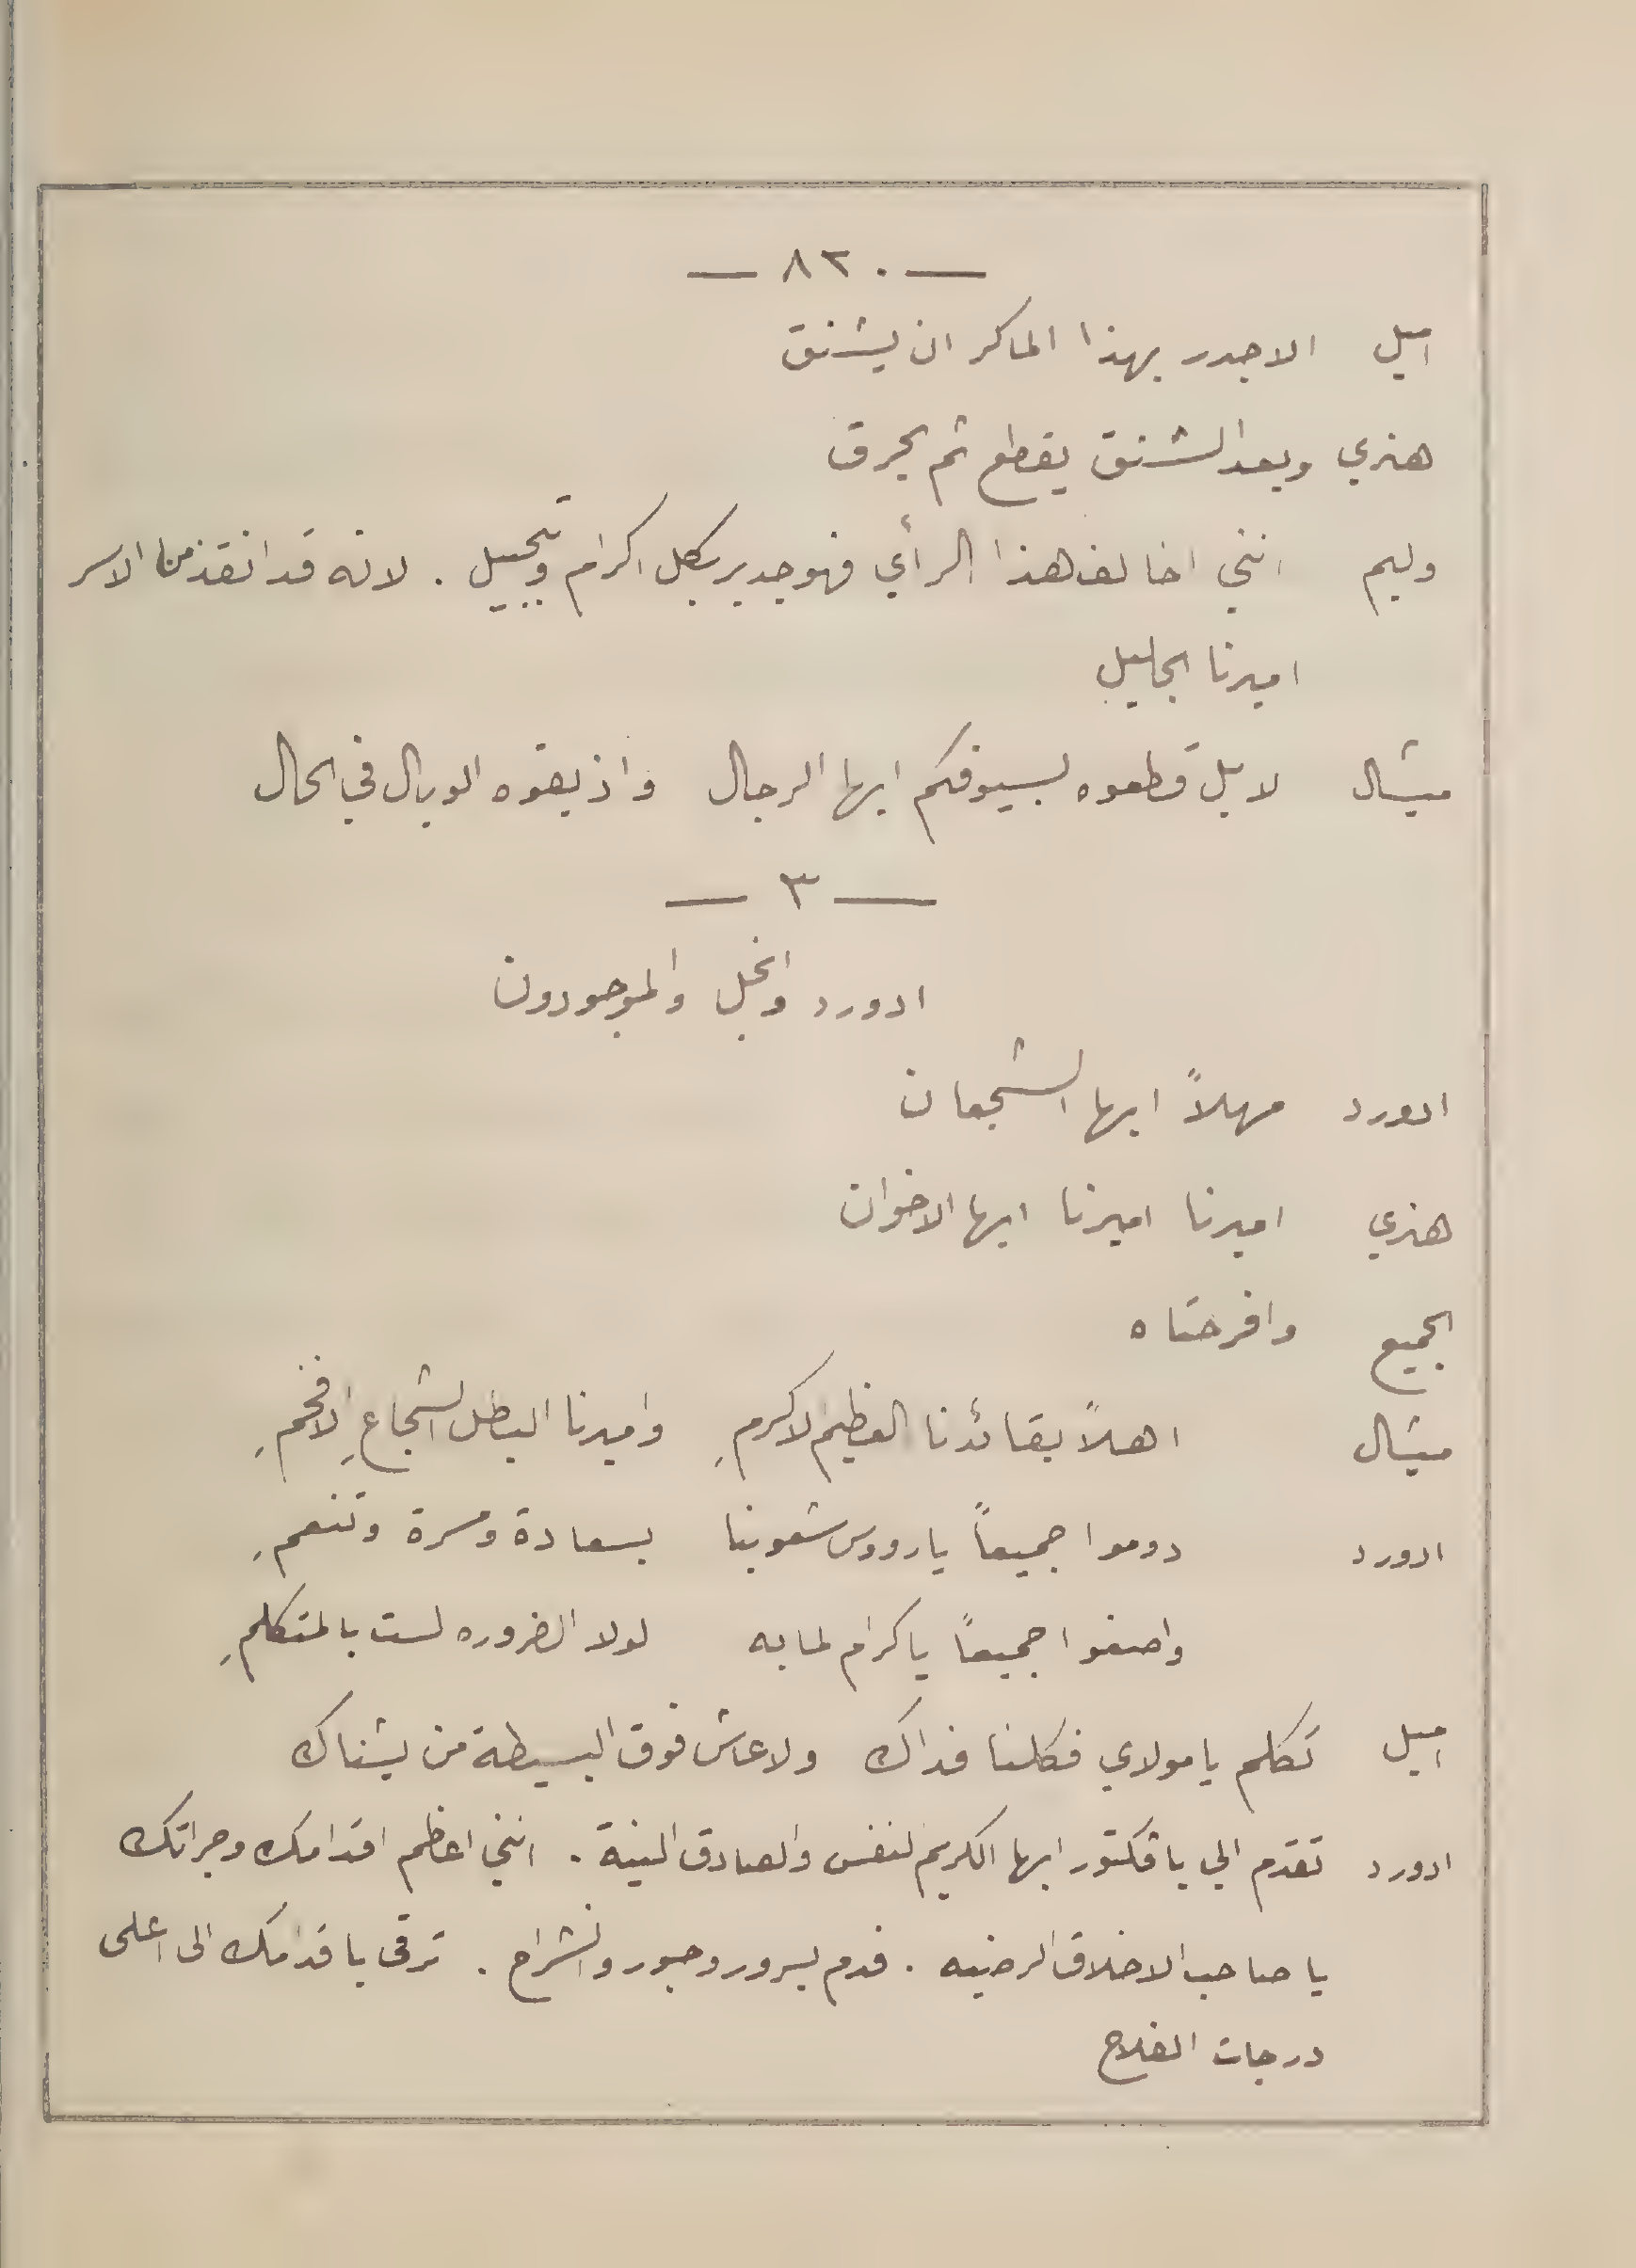 — ٨٢٠ —
اميل الاجدر بهذا الماكر ان يشنق
هنري وبعد الشنق يقطع ثم يحرق
وليم انني اخالف هذا الرأي فهو جدير بكل اكرام وتبجيل . لانه قد انقذ من الاسر
اميرنا الجليل
ميشال لا بل قطعوه بسيوفكم ايها الرجال واذيقوه الوبال في الحال
— ٣ —
ادورد وانجل والموجودون
ادورد مهلاً ايها الشجعان
هنري اميرنا اميرنا ايها الاخوان
الجميع وافرحتاه
ميشال اهلاً بقائدنا العظيم الاكرمِ واميرنا البطل الشجاعِ الافخمِ
ادورد دوموا جميعاً يا رووس شعوبنا بسعادة ومسرة وتنعمِ
واصغوا جميعاً يا كرام لما به لولا الضروره لست بالمتكلمِ
اميل تكلم يا مولاي فكلنا فداك ولا عاش فوق البسيطة من يشناك
ادورد تقدم الي يا فكتور ايها الكريم النفس والصادق النية . انني اعظم اقدامك وجراتك
يا صاحب الاخلاق الرضيه . فدم بسرور وحبور وانشراح . ترقى باقدامك الى اعلى
درجات الفلاح